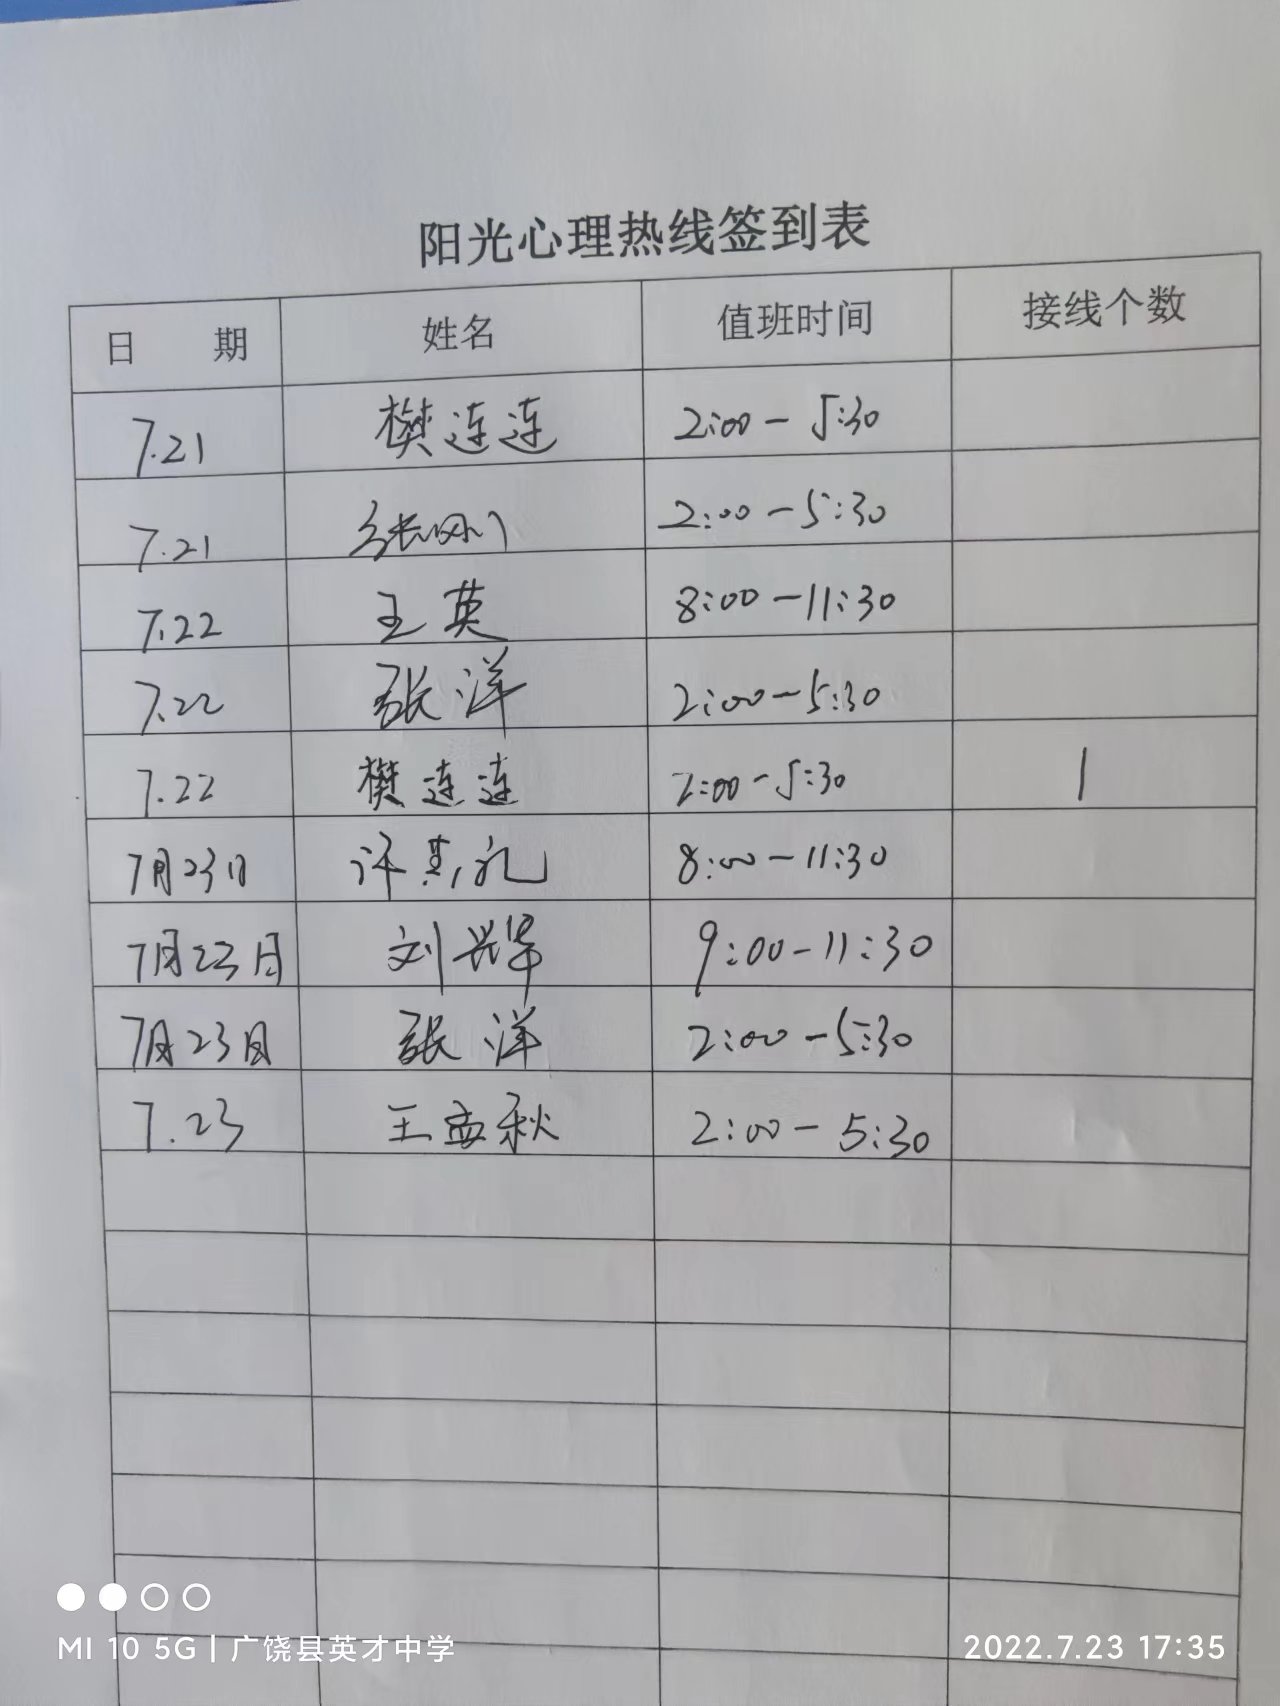 阳光心理热线签到表
日 期 姓名 值班时间 接线个数
7.21 樊连连 2:00-5:30
7.21 张刚 2:00-5:30
7.22 王英 8:00-11:30
7.22 张洋 2:00-5:30
7.22 樊连连 2:00-5:30 1
7月23日 许 礼 8:00-11:30
7月23日 刘兴华 9:00-11:30
7月23日 张洋 2:00-5:30
7.23 王孟秋 2:00-5:30
MI 10 5G | 广饶县英才中学 2022.7.23 17:35